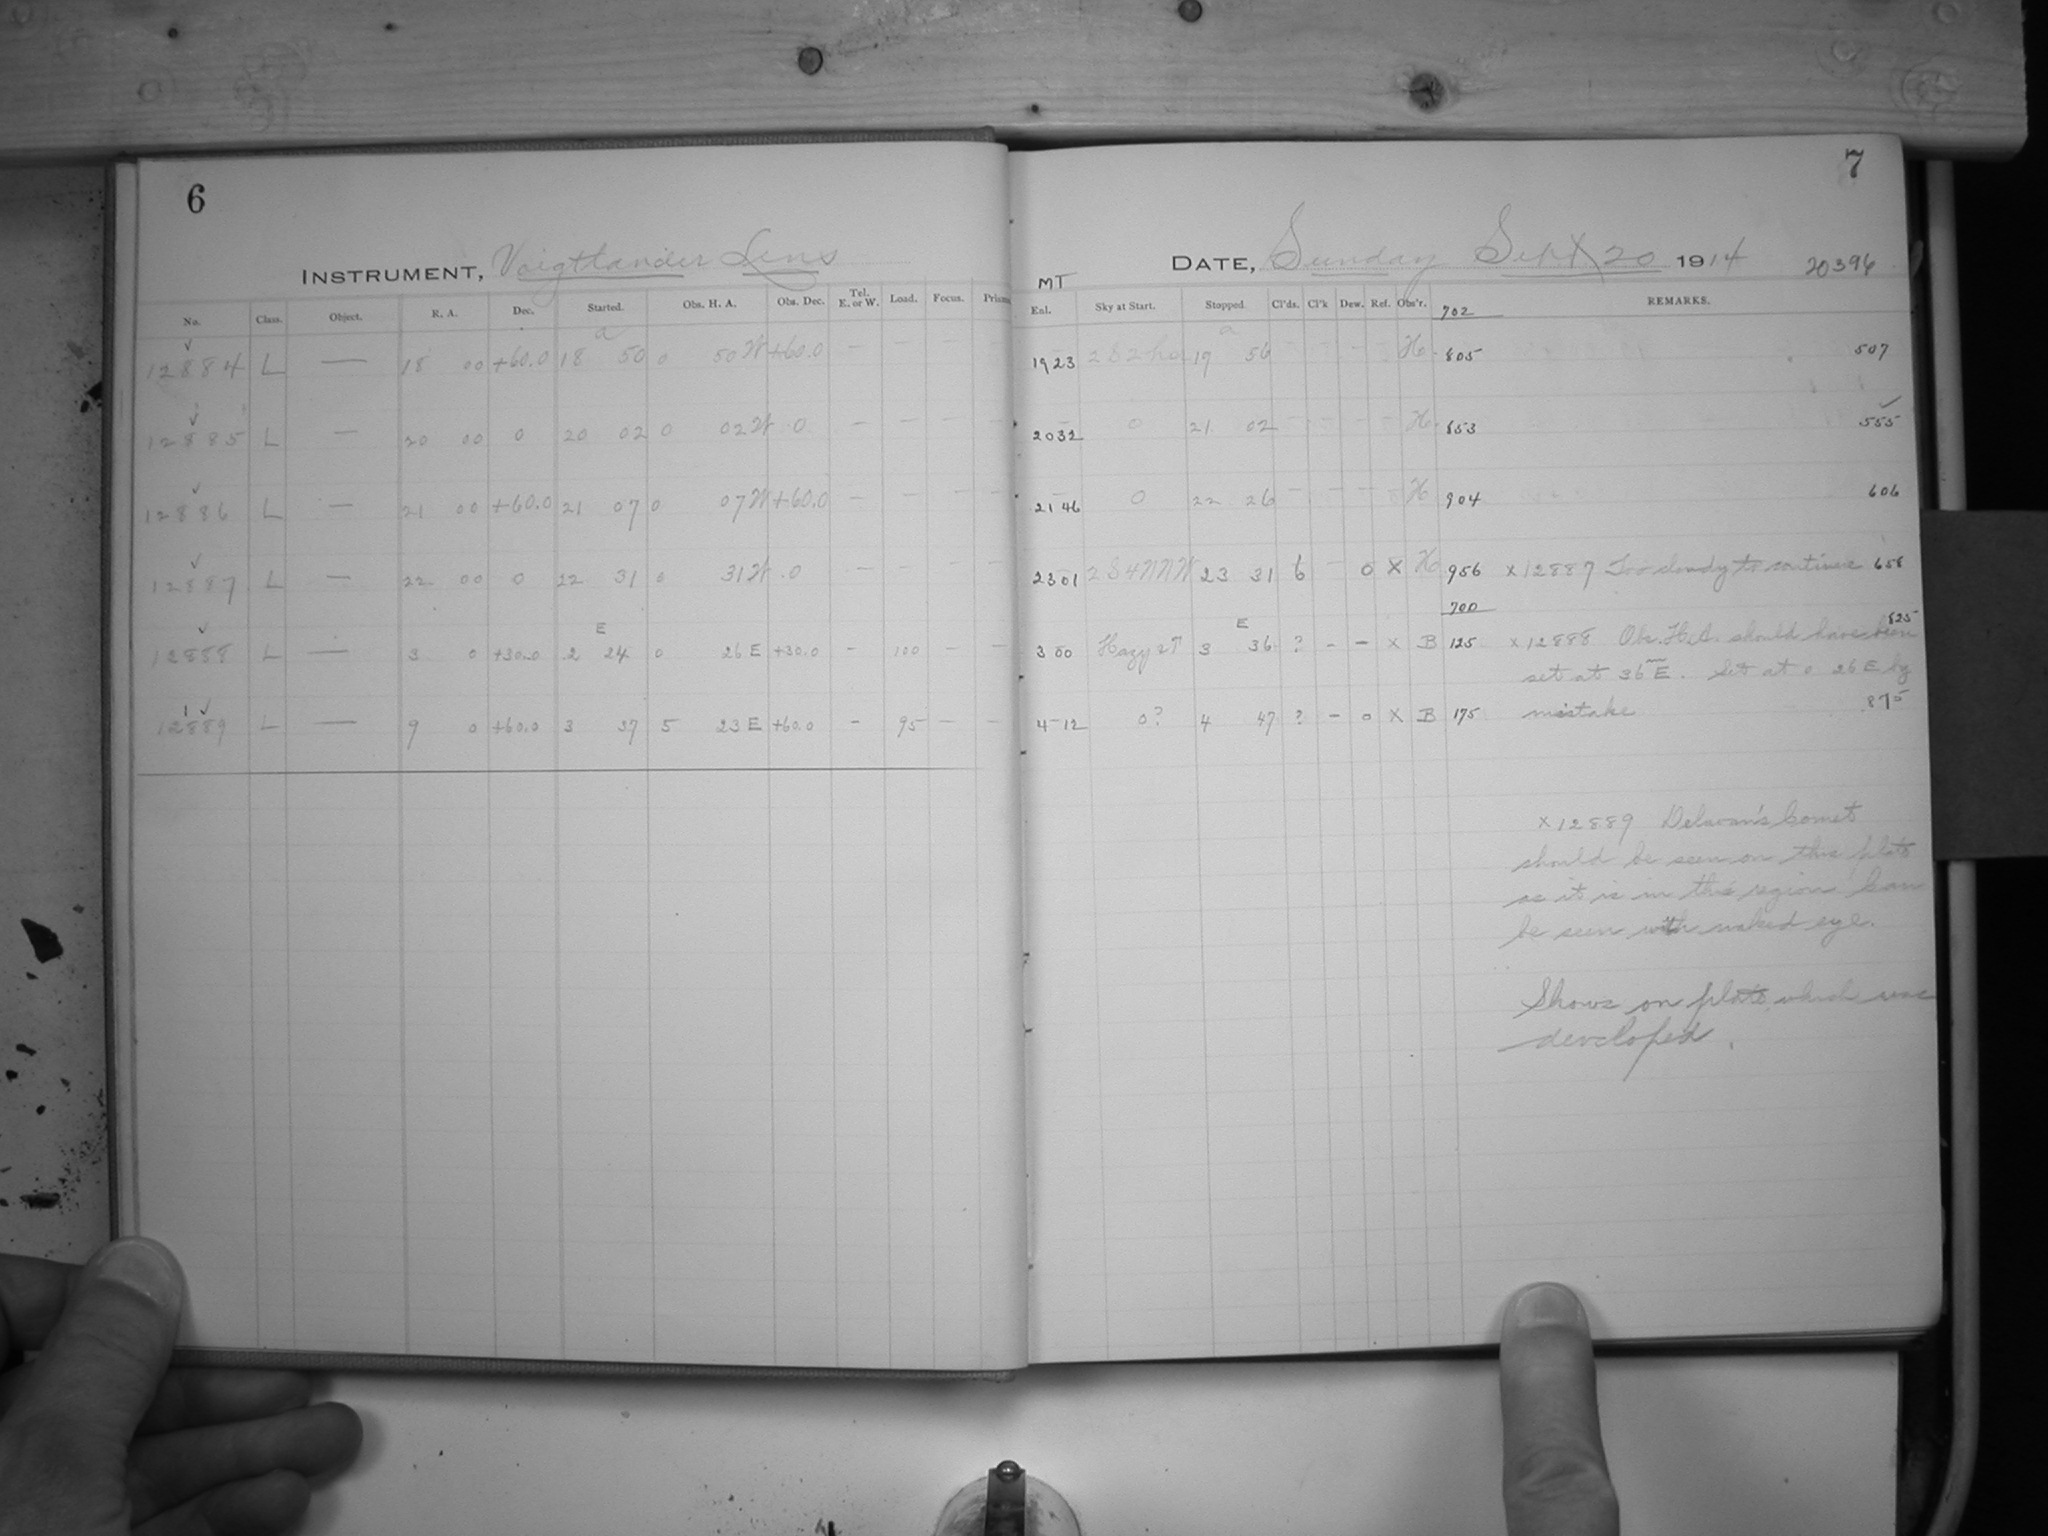 6
INSTRUMENT, Voigtlander Lens
No. Class. Object. R. A. Dec. Started. Obs. H. A. Obs. Dec. Tel. E. or W. Load. Focus. Prism.
12884 L — 18 00 +60.0 18 a 50 0 50 W +60.0 — — — —
12885 L — 20 00 0 20 02 0 02 W 0 — — — —
12886 L — 21 00 +60.0 21 07 0 07 W +60.0 — — — —
12887 L — 22 00 0 22 31 0 31 W 0 — — — —
12888 L — 3 0 +30.0 2 E 24 0 26 E +30.0 — 100 — —
12889 L — 9 0 +60.0 3 37 5 23 E +60.0 — 95 — —
7
DATE, Sunday Sept 20 1914 20396
MT
Exl. Sky at Start. Stopped. Cl'ds. Cl'k Dew. Ref. Obs'r. 702 REMARKS.
19 23 19 a 56 H 805 507
20 32 0 21 02 H 853 555
21 46 0 22 26 H 904 606
23 01 2S4NNW 23 31 6 — 0 X H 956 x 12887 Too cloudy to continue 658
700
3 00 Hazy 3 E 36 ? — — X B 125 x 12888 Obs. H.A. should have been 825
set at 36m E. Set at 0 26 E by
4 12 0? 4 47 ? — 0 X B 175 mistake 875
x 12889 Delavan's Comet
should be seen on this plate
as it is in this region Can
be seen with naked eye.
Shows on plate, which was
developed.